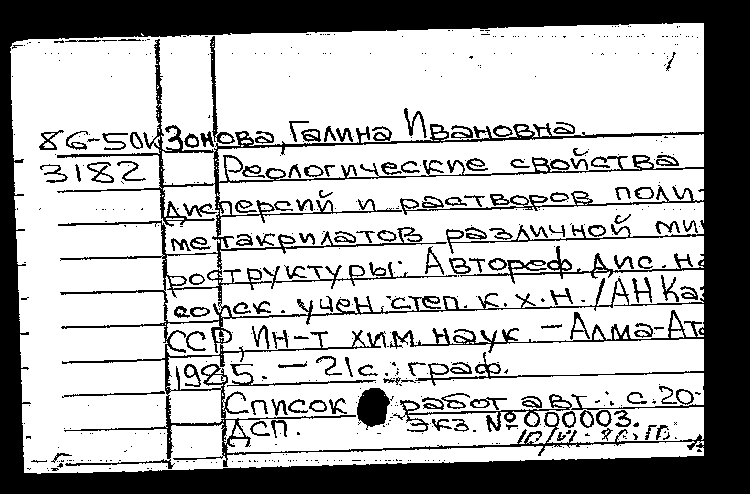 86-50к Зонова, Галина Ивановна.
3182 Реологические свойства
дисперсий и растворов поли-
метакрилатов различной мик
роструктуры: Автореф. дис. на
соиск. учен. степ. к. х. н. /АН Каз
ССР, Ин-т хим. наук. – Алма-Ата
1985. – 21 с.: граф.
Список работ авт.: с. 20-
ДСП. Экз. № 000003.